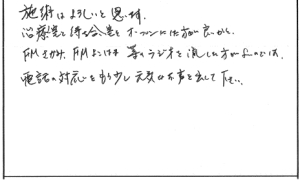 施術はよろしいと思います。
治療室と待合室をオープンにした方が良いかも。
FMさがみ、FMよこはま等のラジオを流した方がよいのでは。
電話の対応をもう少し元気な声を出して下さい。